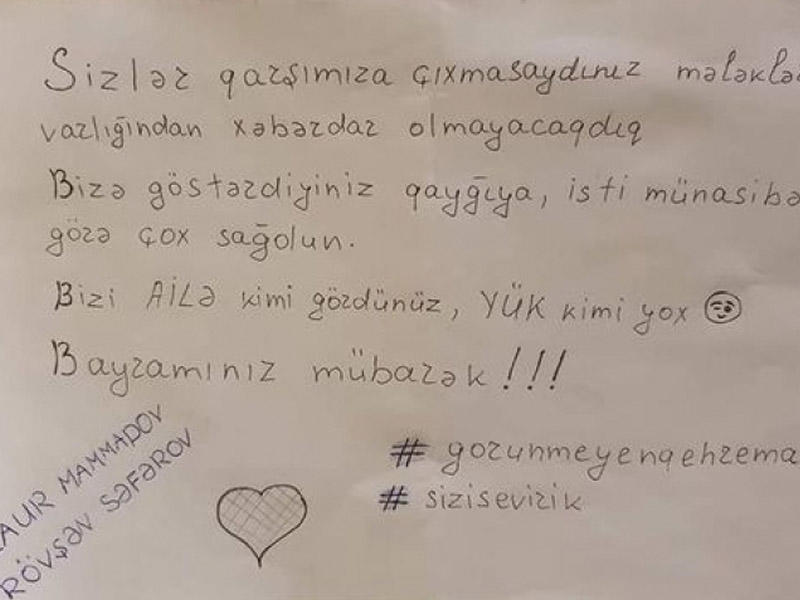 Sizlər qarşımıza çıxmasaydınız mələklə
varlığından xəbərdar olmayacaqdıq
Bizə göstərdiyiniz qayğıya, isti münasibə
görə çox sağolun.
Bizi AİLƏ kimi gördünüz, YÜK kimi yox
Bayramınız mübarək!!!
# gorunmeyenqehrema
# sizisevirik
AUR MAMMADOV
RÖVŞƏN SƏFƏROV